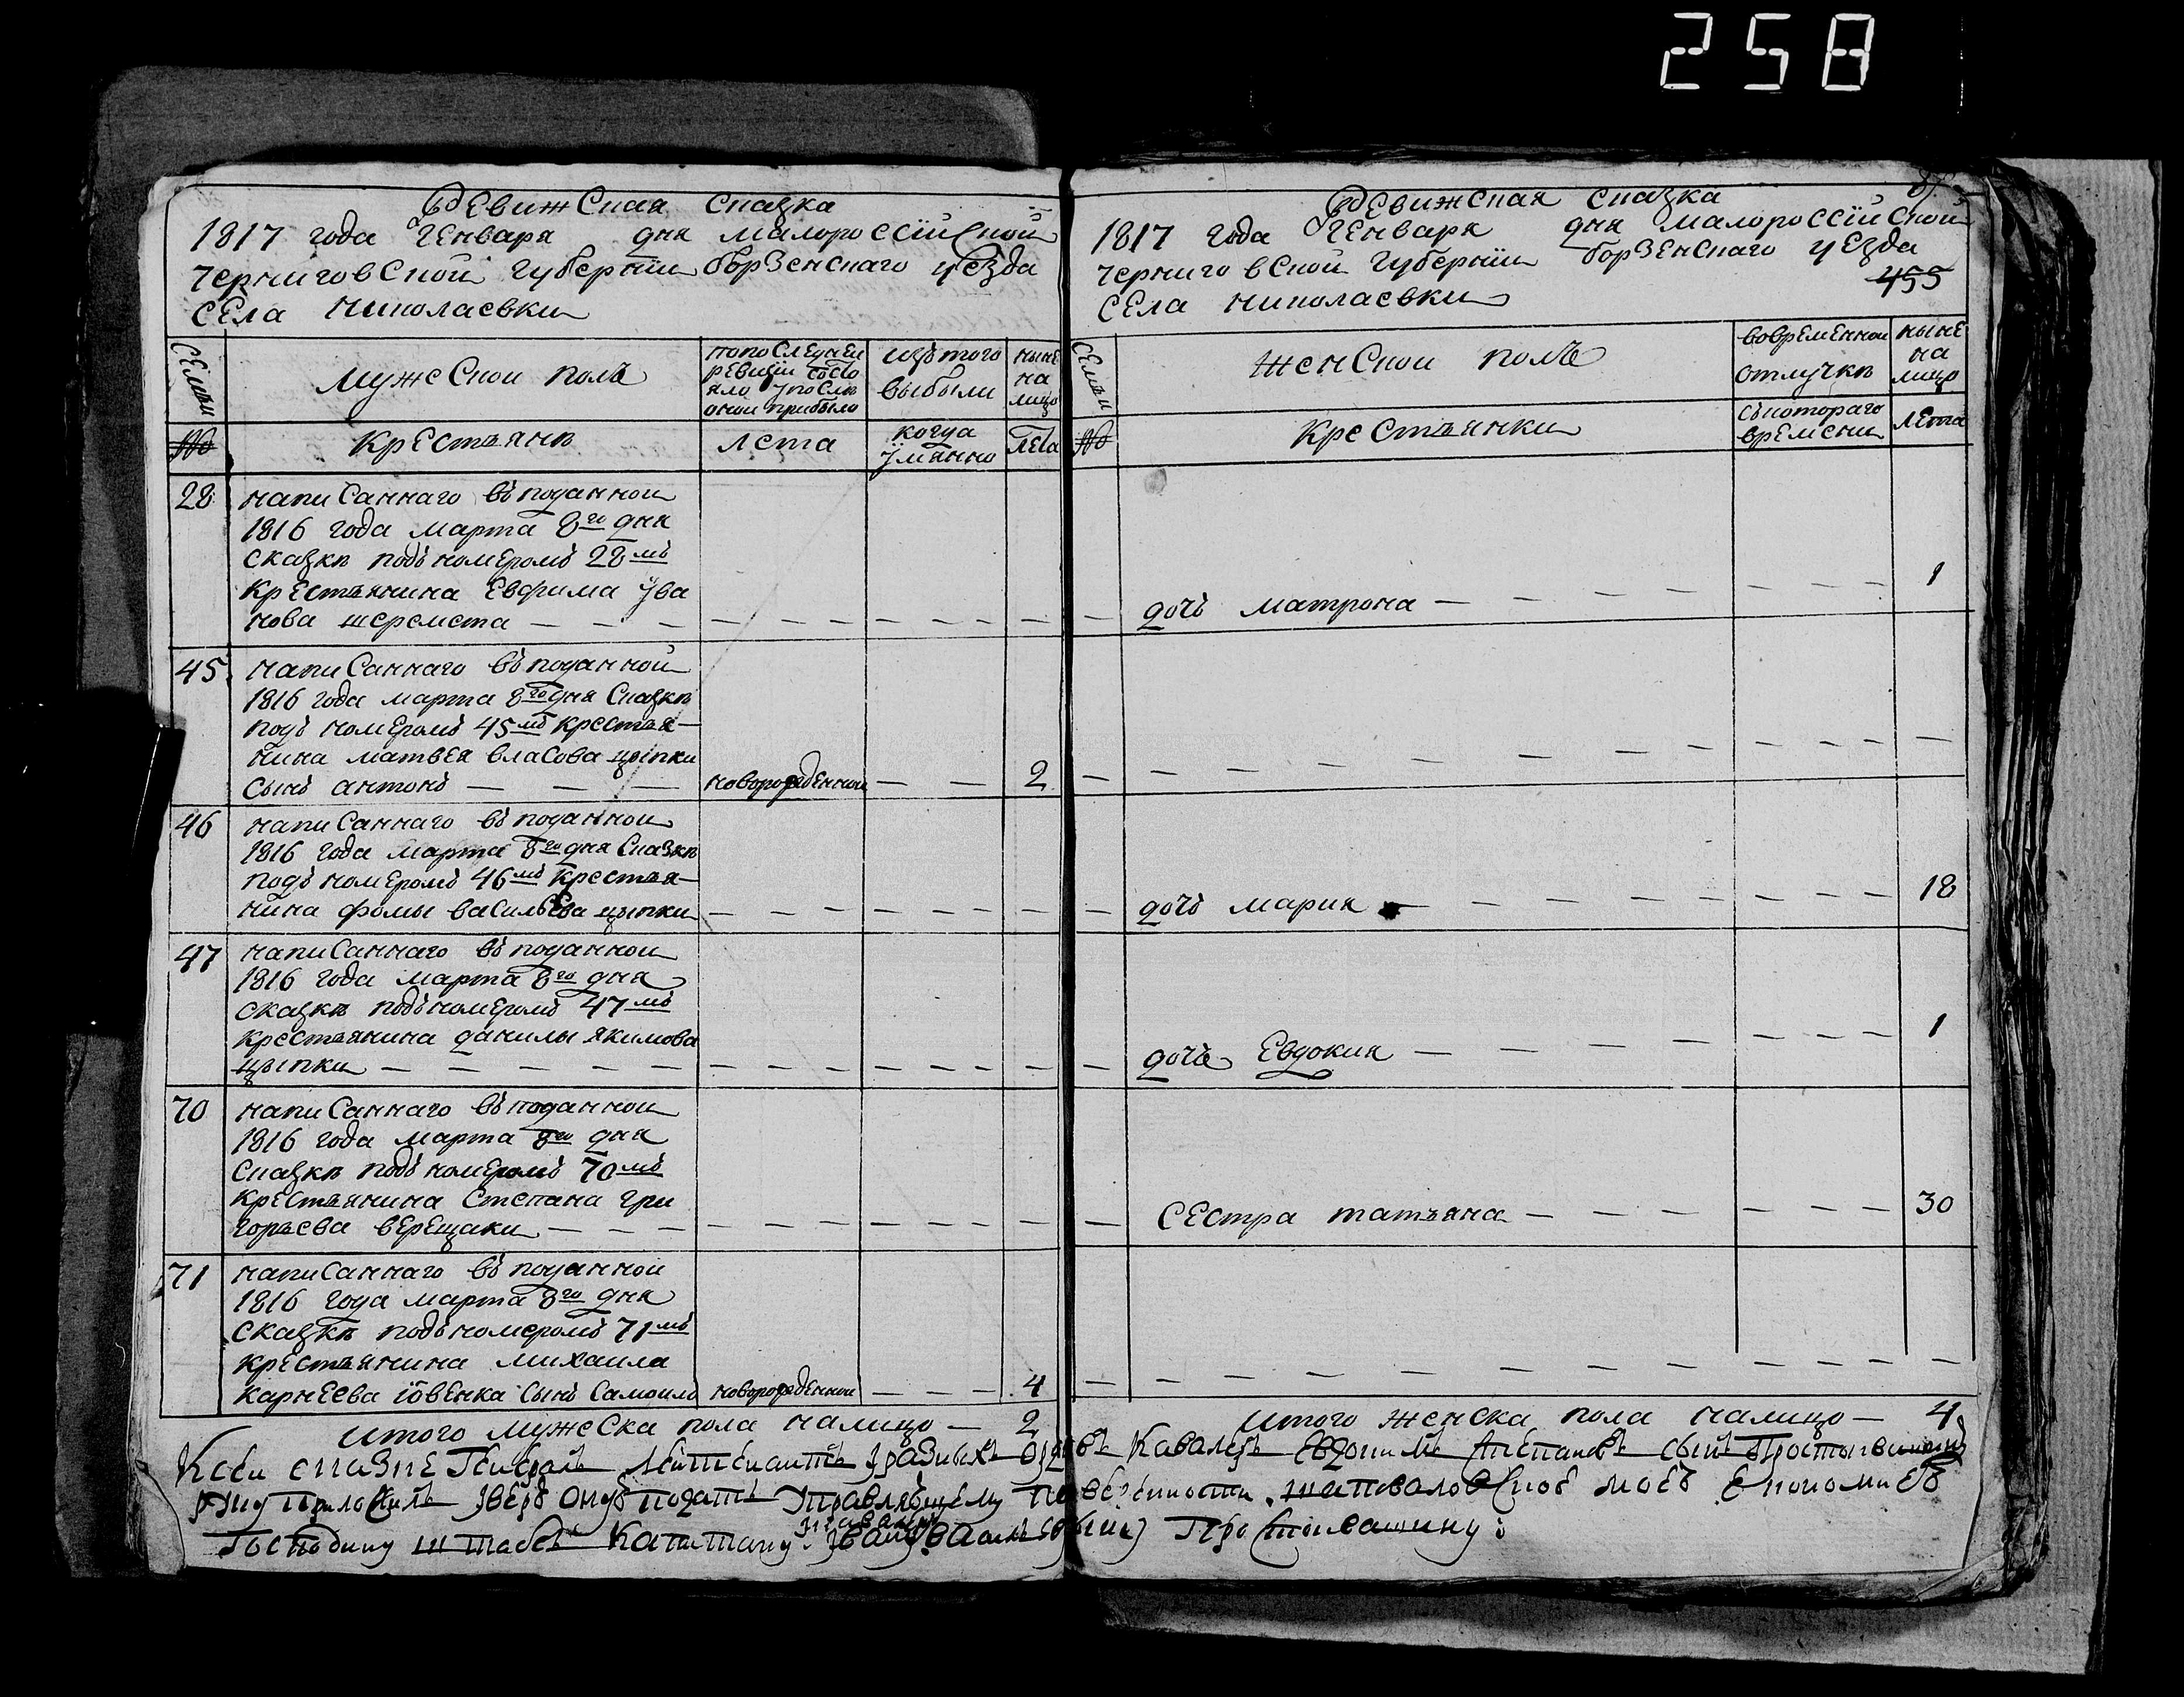 258
Ревижская сказка
1817 года Генваря дня малороссійской
черниговской губерніи борзенскаго уезда
села николаевки
семьи
мужеской полъ
попоследней
ревизіи состо
яло и после
оной прибыло
изътого
выбыли
ныне
на
лицо
№
крестьяне
лета
когда
имянно
лета
28
написаннаго въ поданной
1816 года марта 8го дня
сказке подъ номеромъ 28мъ
крестьянина Евфима Ива
нова шеремета
45
написаннаго въ поданной
1816 года марта 8го дня сказкѣ
подъ номеромъ 45мъ крестья
нина матвея власова цыпки
сынъ антонъ новорожденной 2
46
написаннаго въ поданной
1816 года марта 8го дня сказкѣ
подъ номеромъ 46мъ крестья
нина фомы васильева цыпки
47
написаннаго въ поданной
1816 года марта 8го дня
сказкѣ подъ номеромъ 47мъ
крестьянина данилы якимова
цыпки
70
написаннаго въ поданной
1816 года марта 8го дня
сказкѣ подъ номеромъ 70мъ
крестьянина степана гри
горьева верещаки
71
написаннаго въ поданной
1816 года марта 8го дня
сказкѣ подъ номеромъ 71мъ
крестьянина михаила
карнеева іовенка сынъ самоило новорожденной 4
итого мужеска пола налицо — 2
Ревижская сказка
1817 года Генваря дня малороссійской
черниговской губерніи борзенскаго уезда
455
села николаевки
семьи
женской полъ
вовременной
отлучкѣ
ныне
на
лицо
№
крестьянки
съкотораго
времени
лета
дочь матрона 1
дочь мария 18
дочь Евдокия 1
сестра татьяна 30
итого женска пола налицо — 4
Ксеи сказке Генералъ Лейтенантъ Кавалеръ сынъ
руку приложилъ подать Управляющему моеъ Економиеъ
Господину штабсъ Капитану